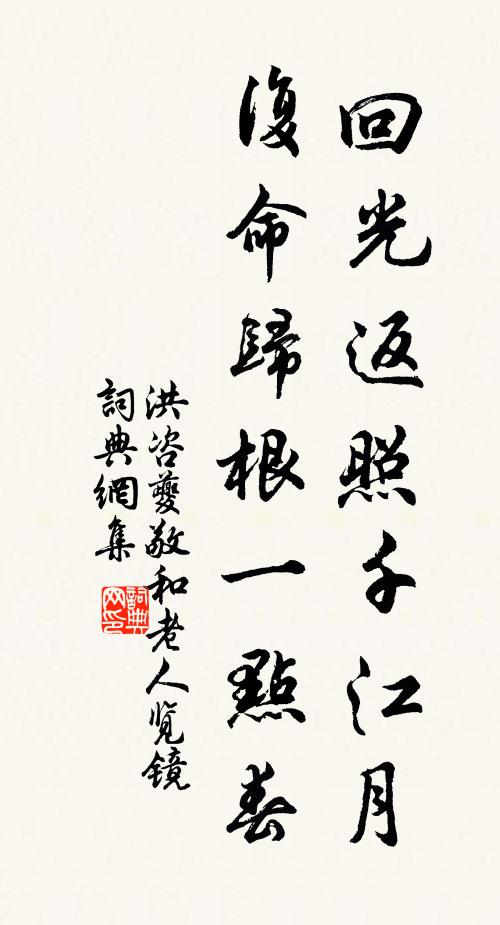 回光返照千江月
復命歸根一點春
洪咨夔敬和老人览镜
詞典網集
詞典
网印